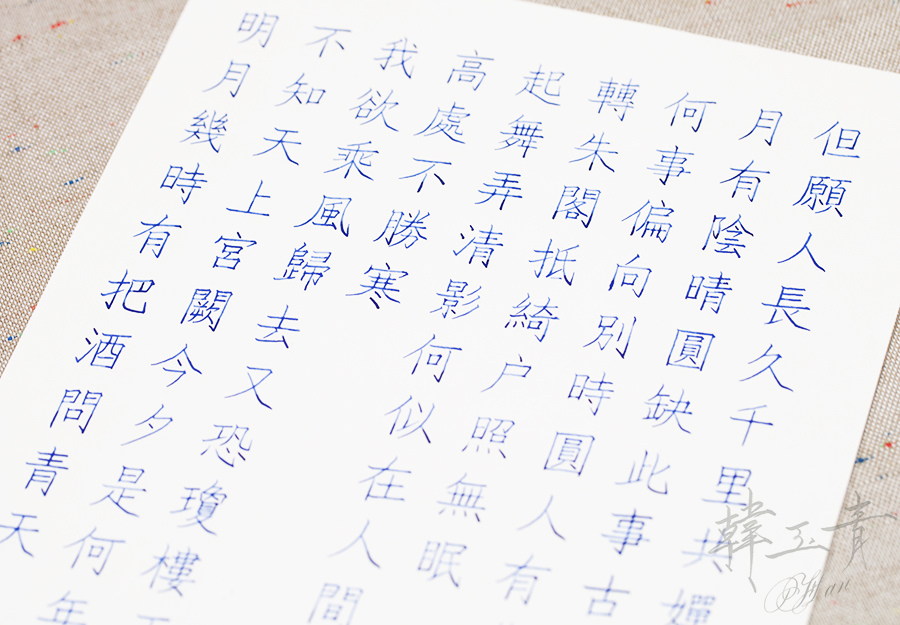 明月幾時有把酒問青天
不知天上宮闕今夕是何年
我欲乘風歸去又恐瓊樓
高處不勝寒
起舞弄清影何似在人間
轉朱閣抵綺户照無眠
何事偏向別時圓人有
月有陰晴圓缺此事古
但願人長久千里共嬋
韓玉青